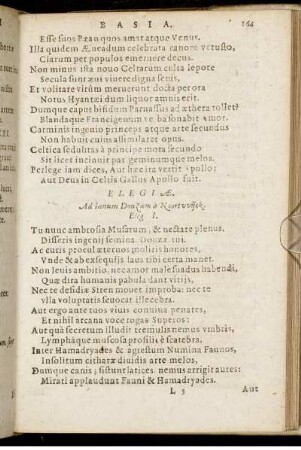 BASIA. 164
Esse suos Pæan quos amat atque Venus.
Illa quidem Æneadum celebrata canore vetusto,
Clarum per populos emeruere decus.
Non minus ista novo Celtarum culta lepore
Secula sunt ævi vivere digna senis,
Et volitare virûm meruerunt docta per ora
Notus Hyantei dum liquor amnis erit.
Dumque caput bifidum Parnassus ad æthera tollet:
Blandaque Francigenum verba sonabit Amor.
Carminis ingenio princeps atque arte secundus
Non habuit cui ns assimilaret opus.
Celtica sedulitas à principe mota secundo
Sit licet inciauit par geminumque melos.
Perlege iam dices, Aut hæc ita vertit Apollo:
Aut Deus in Celtis Gallus Apollo fuit.
ELEGIÆ.
Ad Ianum Douzam à Noortvviick.
Eleg. I.
Tu nunc ambrosia Musarum, & nectare plenus,
Disseris ingenij semina Douza tui.
Ac cutis procul æternos moliris honores,
Unde & ab exsequijs laus tibi certa manet.
Non leuis ambitio, nec amor male suadus habendi,
Quæ dira humanis pabula dant vitijs,
Nec te desidiæ Siren mouet improba: nec te
Vlla voluptatis seuocat illecebra.
Aut ergo ante tuos viuis conuiua penates,
Et nihil arcana voce rogas Superos:
Aut quà secretum illudit tremulis nemus vmbris,
Lymphaque muscosa prosilis è scatebra,
Inter Hamadryades & agrestum Numina Faunos,
Insolitum citharæ diuidis arte melos,
Dumque canis, sistunt latices, nemus arrigit aures:
Mirati applaudunt Fauni & Hamadryades.
L 5 Aut